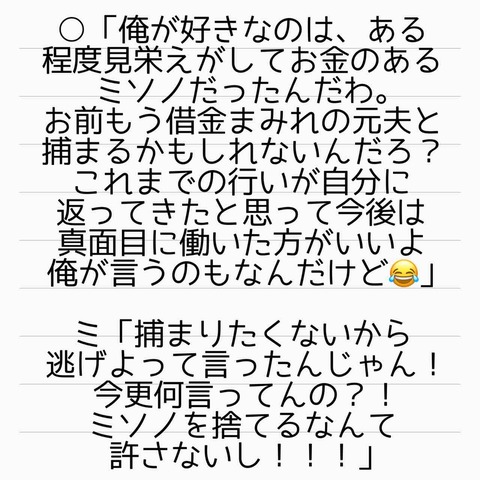 ○「俺が好きなのは、ある
程度見栄えがしてお金のある
ミソノだったんだわ。
お前もう借金まみれの元夫と
捕まるかもしれないんだろ？
これまでの行いが自分に
返ってきたと思って今後は
真面目に働いた方がいいよ
俺が言うのもなんだけど😂」
ミ「捕まりたくないから
逃げよって言ったんじゃん！
今更何言ってんの？！
ミソノを捨てるなんて
許さないし！！！」